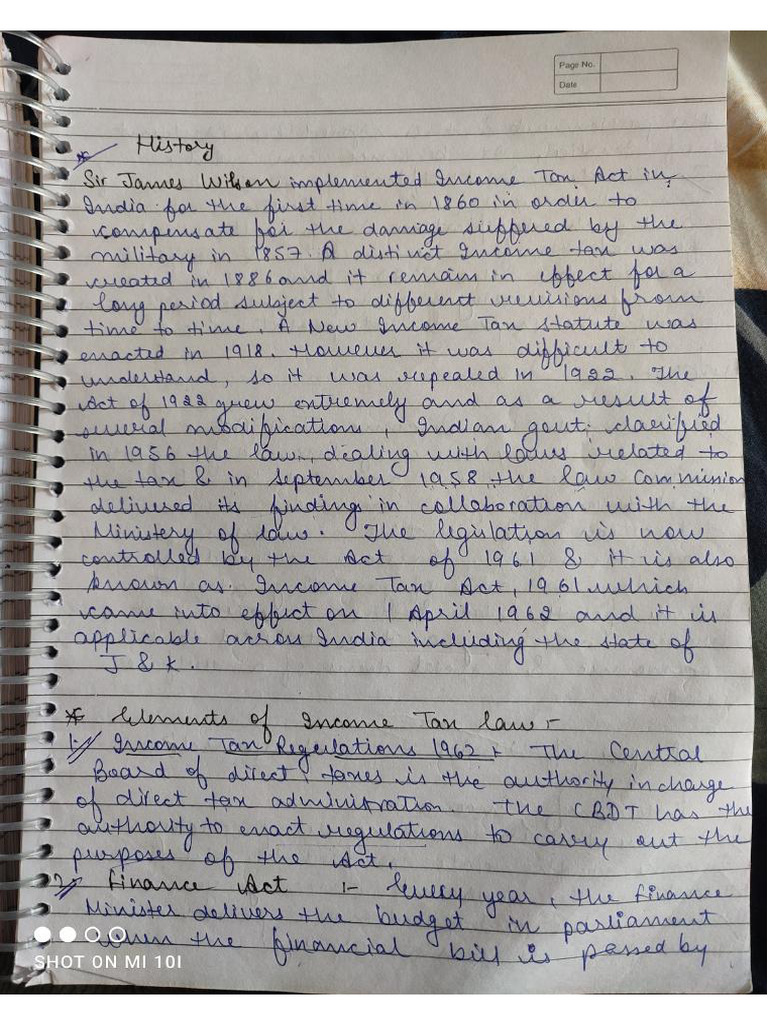 Page No.
Date
* History
Sir James Wilson implemented Income Tax Act in
India for the first time in 1860 in order to
compensate for the damage suffered by the
military in 1857. A distinct Income tax was
created in 1886 and it remain in effect for a
long period subject to different revisions from
time to time. A New Income Tax statute was
enacted in 1918. However it was difficult to
understand, so it was repealed in 1922. The
Act of 1922 grew extremely and as a result of
several modifications, Indian govt. clarified
in 1956 the law, dealing with laws related to
the tax & in September 1958 the law Commission
delivered its findings in collaboration with the
Ministery of law. The legislation is now
controlled by the Act of 1961 & it is also
known as Income Tax Act, 1961 which
came into effect on 1 April 1962 and it is
applicable across India including the state of
J & K.
* Elements of Income Tax law :-
1. Income Tax Regulations 1962 :- The Central
Board of direct taxes is the authority in charge
of direct tax administration. The CBDT has the
authority to enact regulations to carry out the
purposes of the Act.
2. Finance Act :- Every year, the finance
Minister delivers the budget in parliament
when the financial bill is passed by
SHOT ON MI 10I